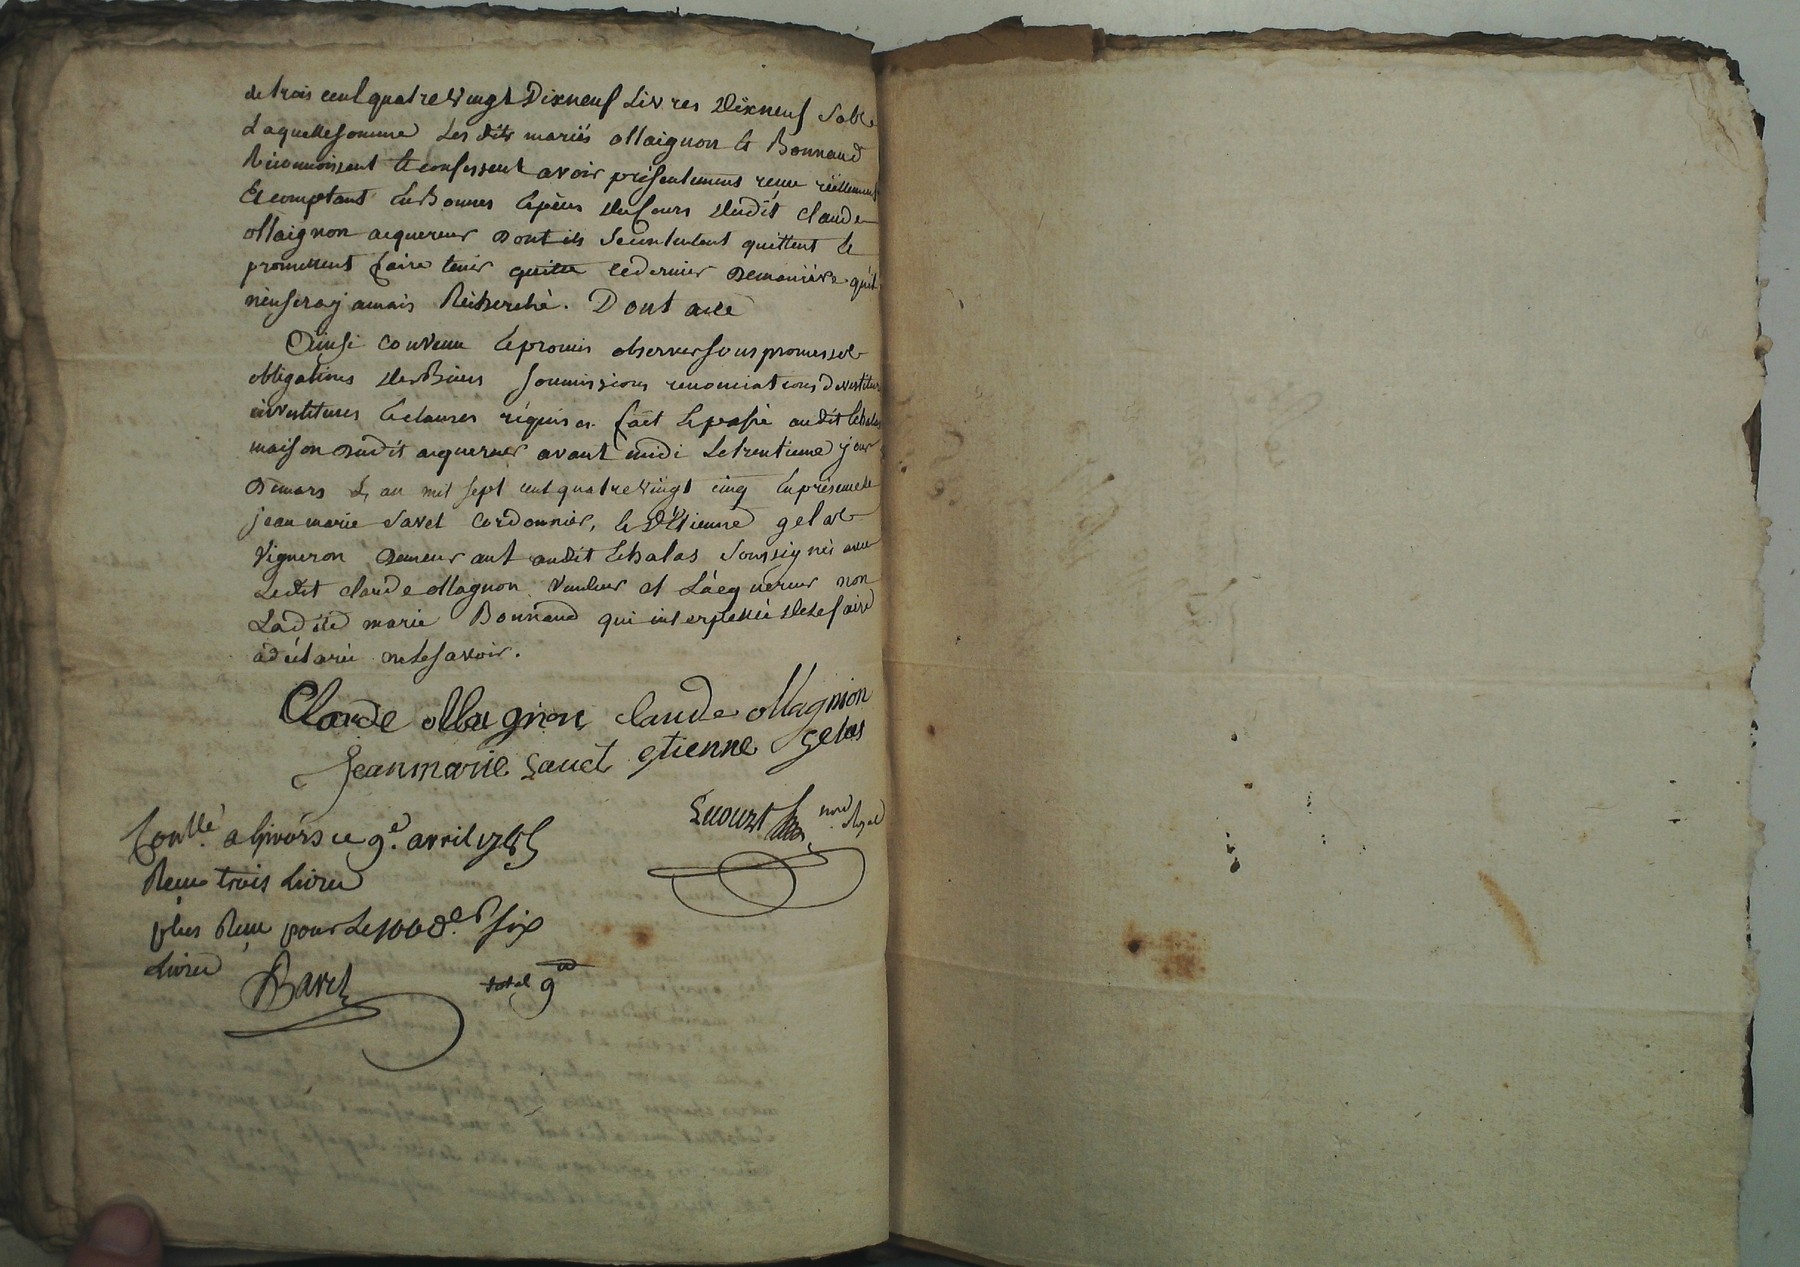 de trois cent quatre vingt Dixneuf Livres Dixneuf Sols
Laquelle somme Les dits mariés ollaignon et Bonnand
Réconnoissent et confessent avoir présentement reçue réellement
Et comptant En Bonnes Espèces du Cours dudit claude
ollaignon acquereur Dont ils se contentent quittent et
promettent faire tenir quitte ce dernier De manière qu'il
n'en sera jamais Récherché. Dont acte
Ainsi convenu et promis observer sous promesses
obligations des Biens soumissions renonciations devestitures
investitures et clauses réquises. fait et passé audit Echalas
maison dudit acquereur avant midi le trentieme jour
De mars L'an mil sept cent quatre vingt cinq En présence de
jean marie Savel Cordonnier, et D'Etienne gelas
Vigneron Demeurant audit Echalas Soussignés avec
Ledit claude ollagnon Vendeur et L'acquereur non
Ladite marie Bonnand qui interpellée de le faire
a déclaré ne le savoir.
Claude ollagnon claude ollagnion
jean marie Sauel etienne gelas
not. Royal
Conllé. a Givors ce 9e. avril 1785
Reçu trois Livres
plus Reçu pour Le 100 d.er six
Livres
Barel total 9